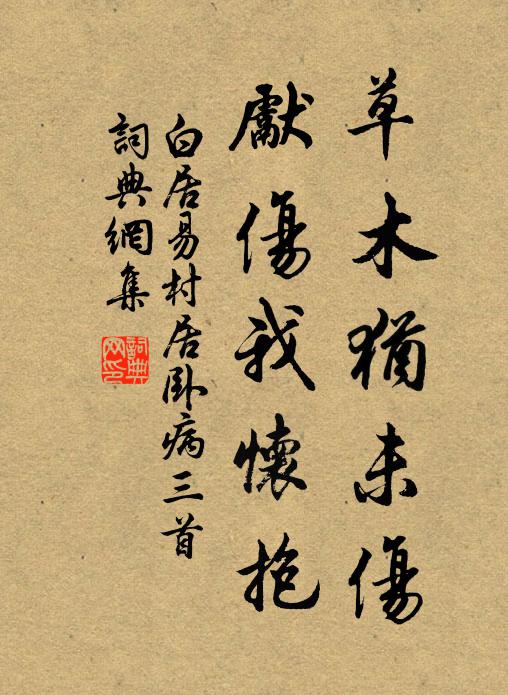 草木猶未傷
獻傷我懷抱
白居易村居卧病三首
詞典網集
詞典
网印